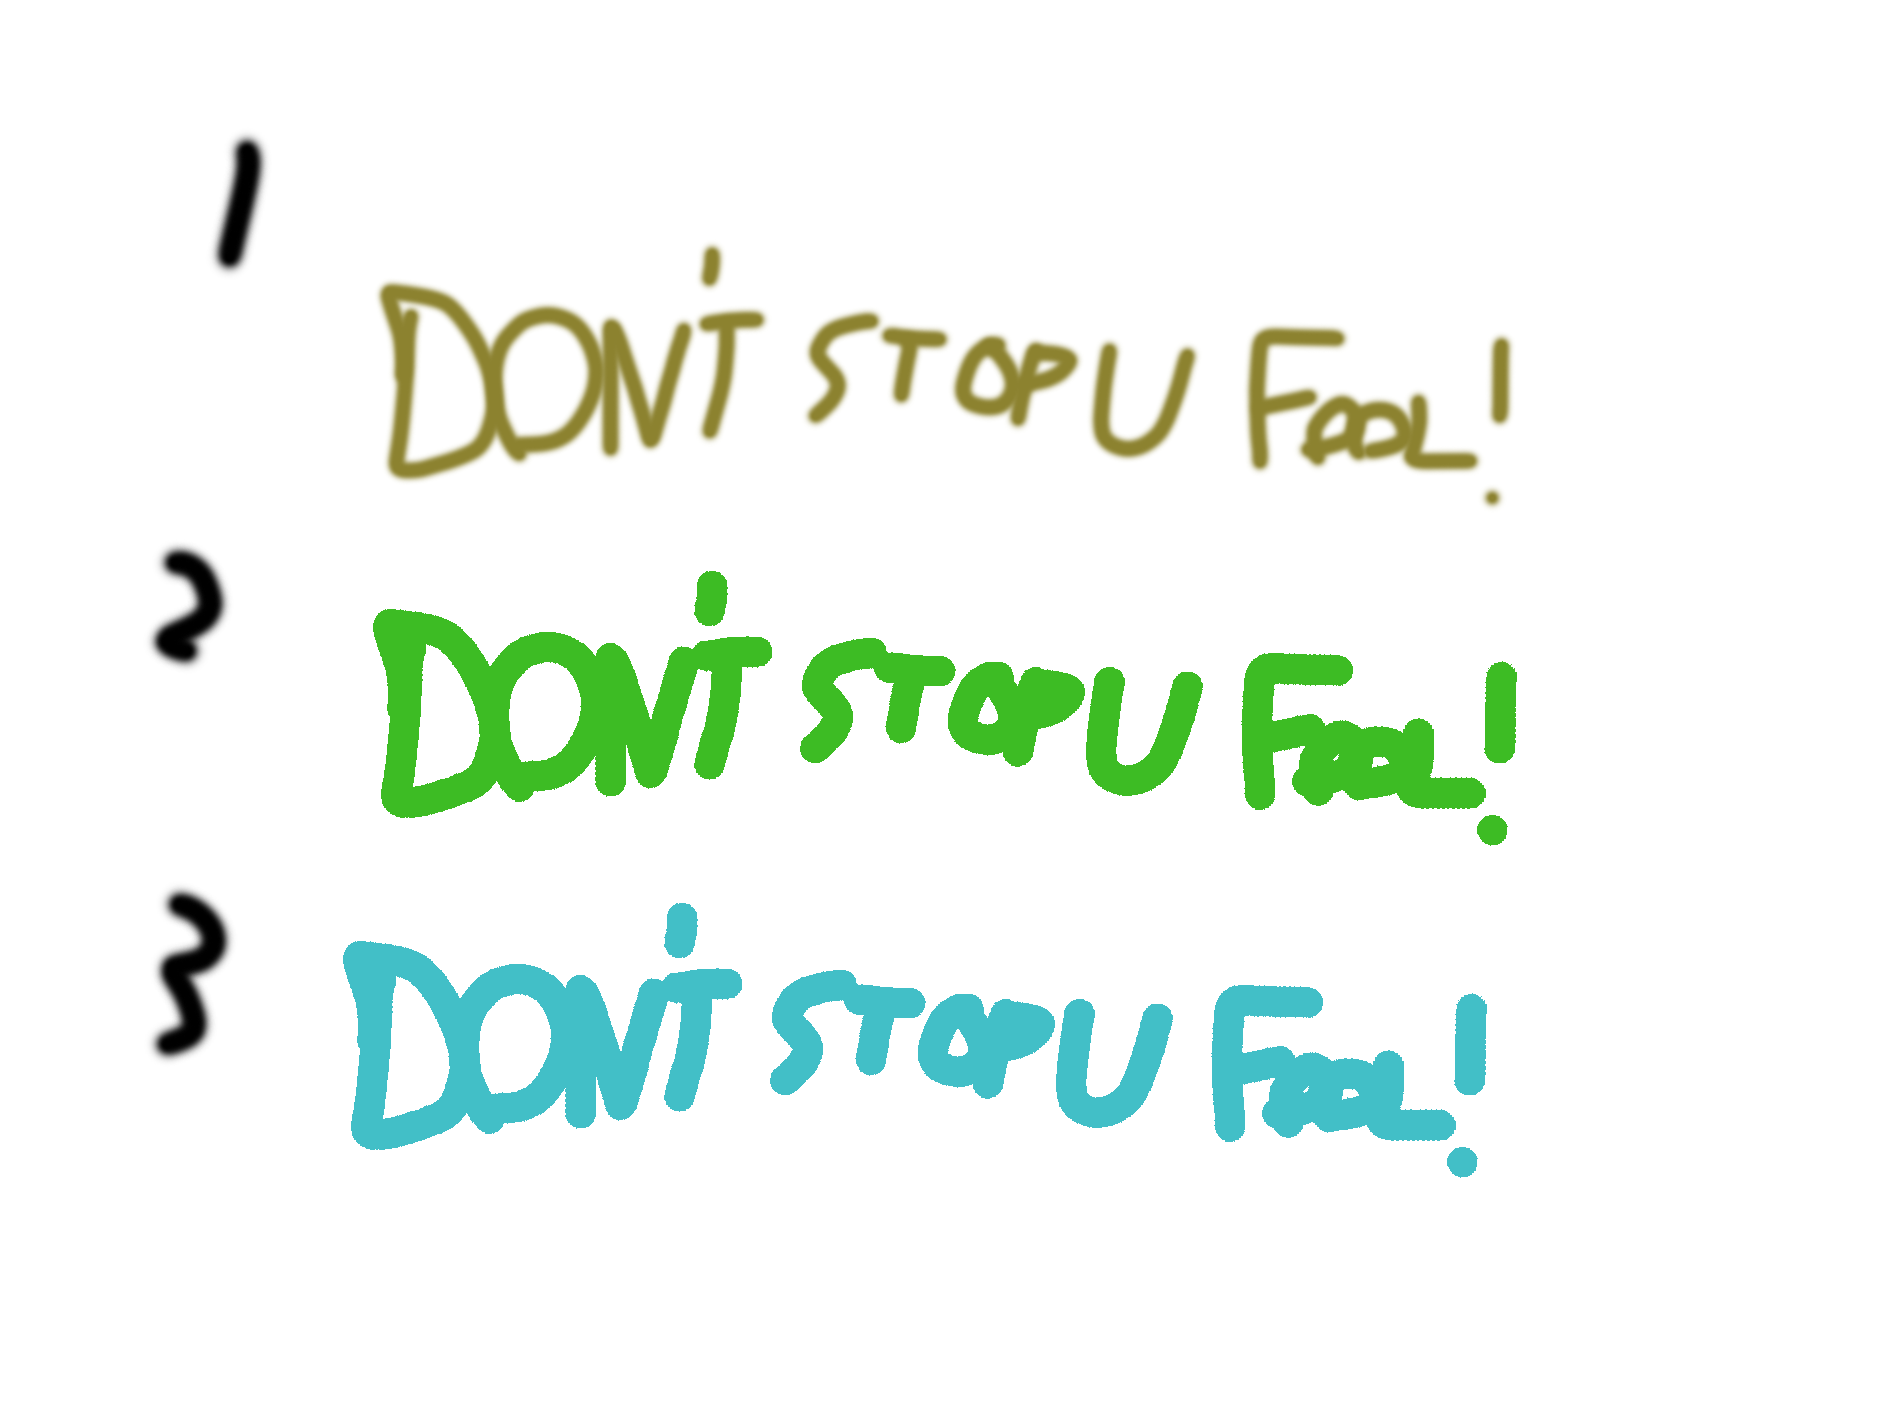 1
DON'T STOP U FOOL!
2
DON'T STOP U FOOL!
3
DON'T STOP U FOOL!